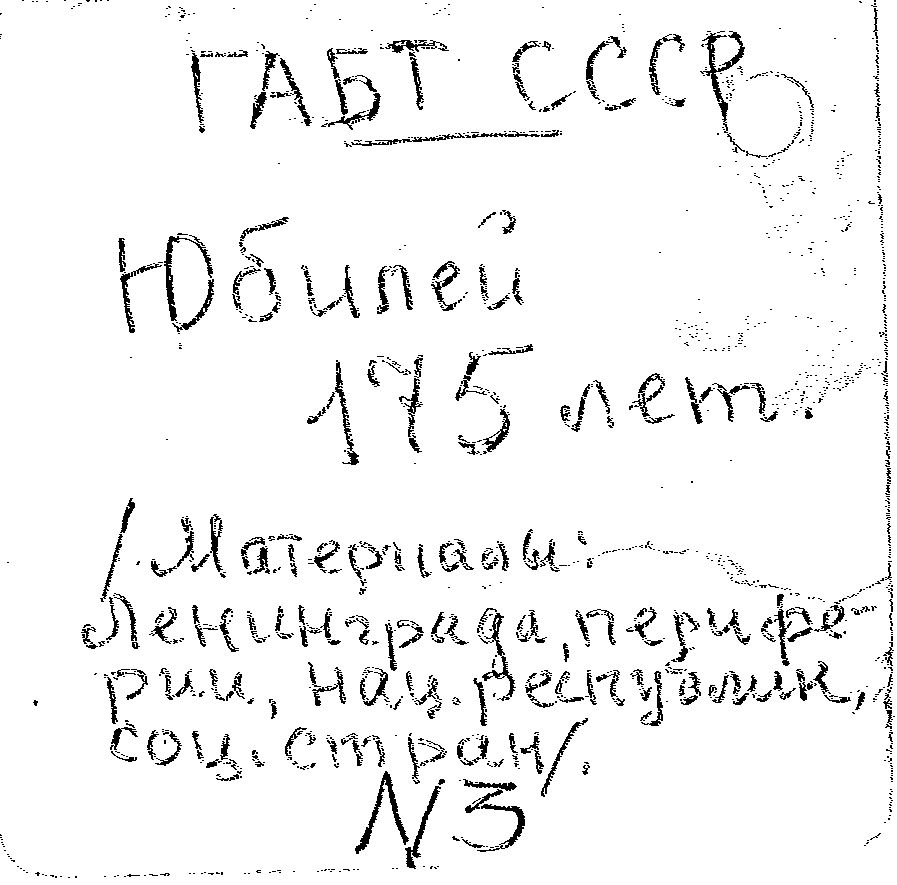 ГАБТ СССР
Юбилей
175 лет.
/Материалы:
Ленинграда, перифе-
рии, нац. республик,
соц. стран/.
N3